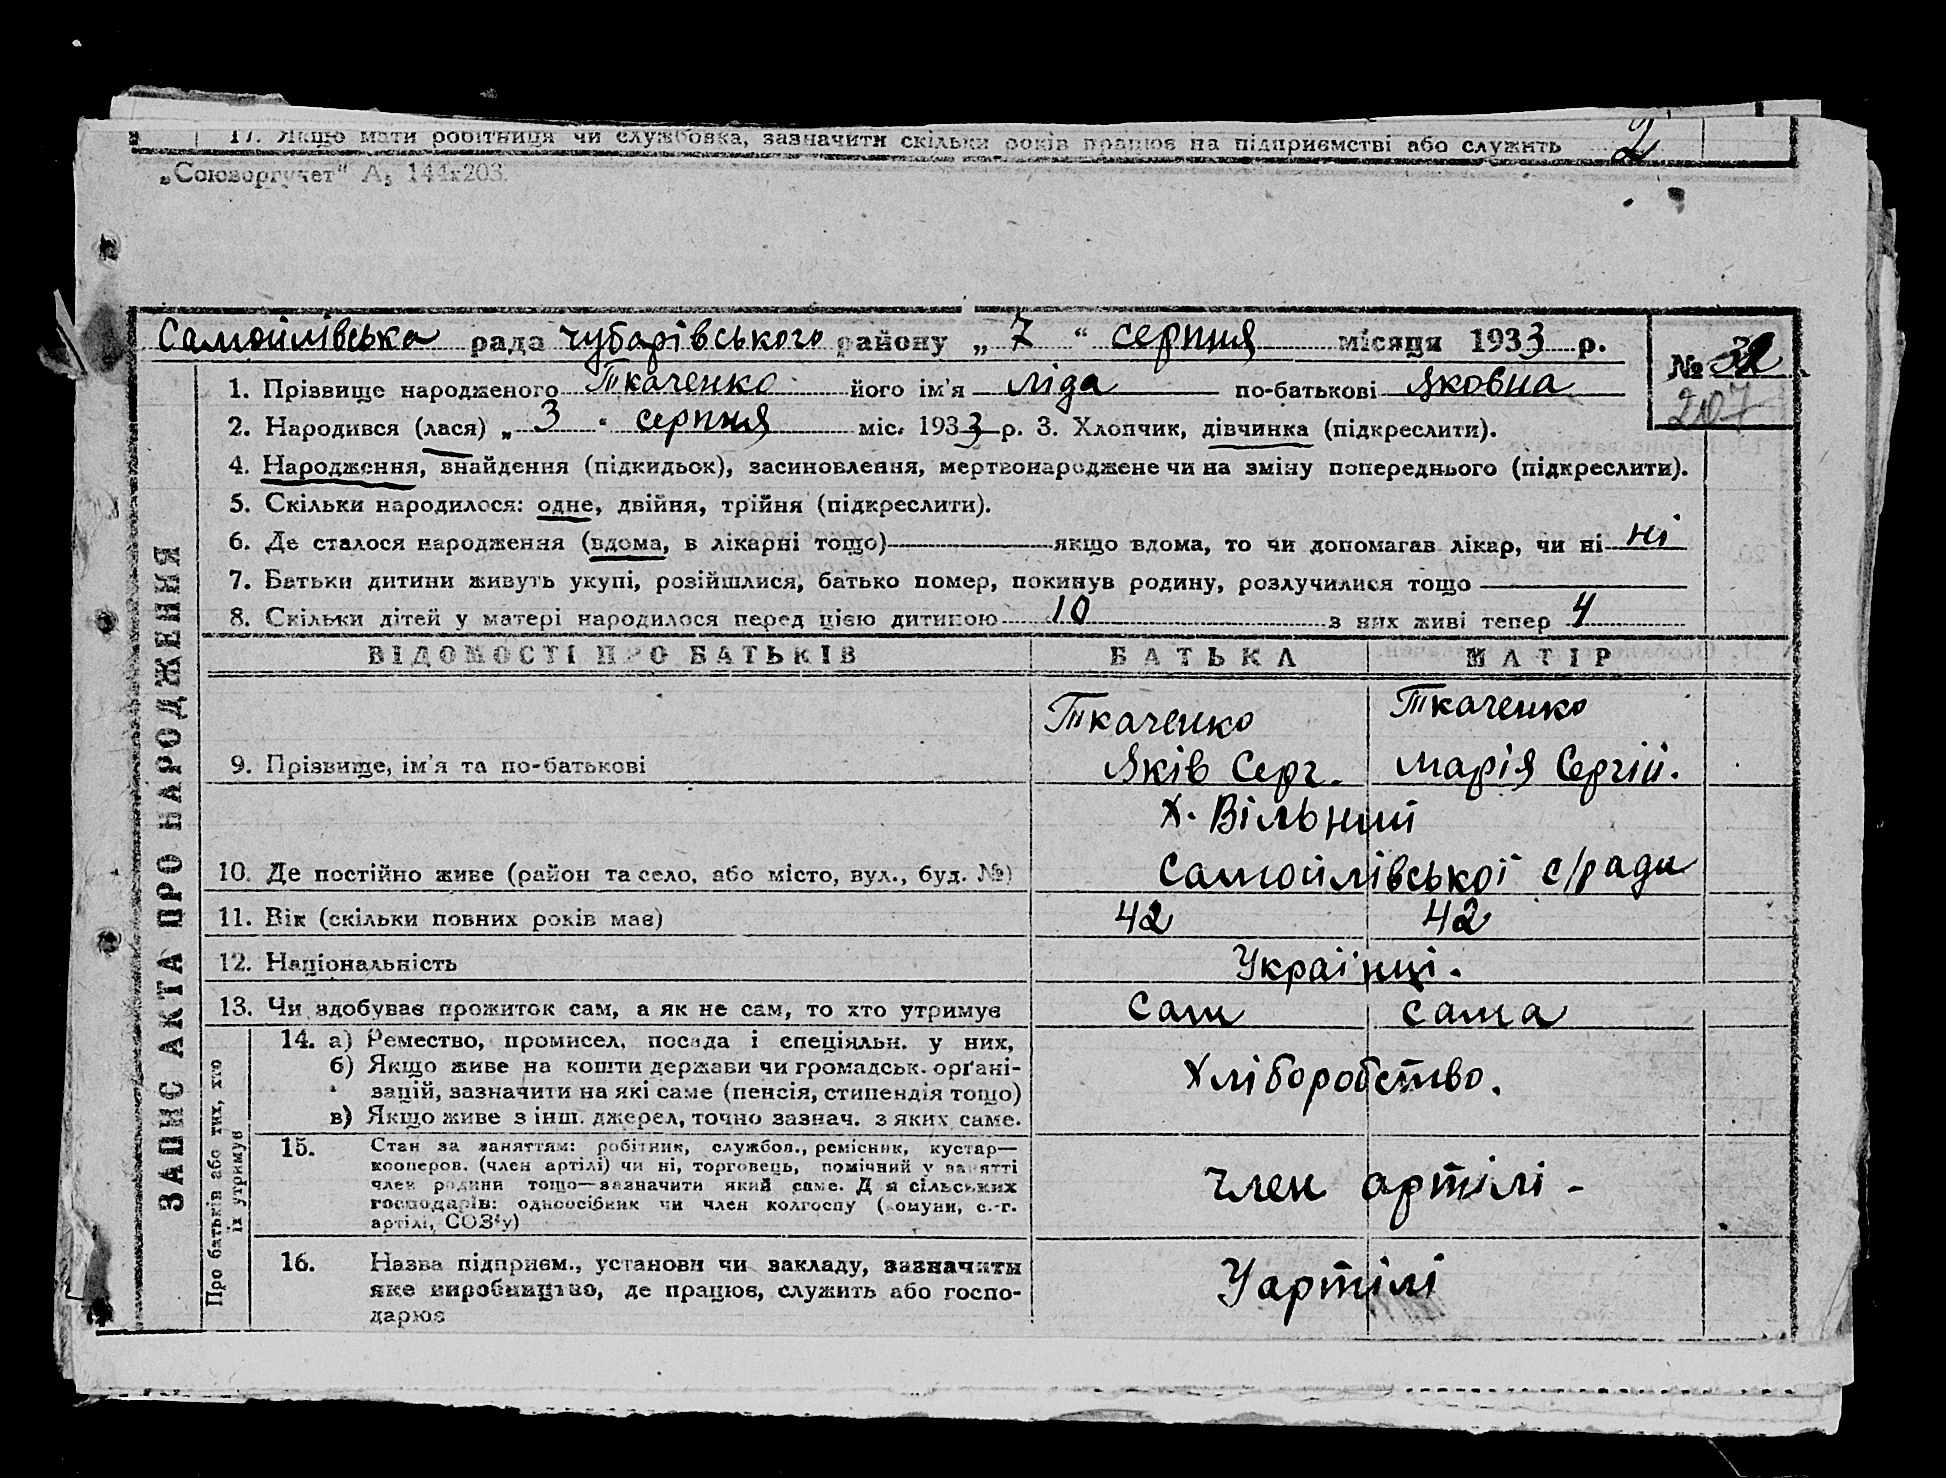 17. Якщо мати робітниця чи службовка, зазначити скільки років працює на підприємстві або служить 2
„Союзоргучет" А5 144х203.
Самойлівська рада Чубарівського району „ 7 " серпня місяця 1933 р.
№ 32
207
1. Прізвище народженого Ткаченко його ім'я Ліда по-батькові Яковна
2. Народився (лася) „ 3 " серпня міс. 1933 р. 3. Хлопчик, дівчинка (підкреслити).
4. Народження, знайдення (підкидьок), засиновлення, мертвонароджене чи на зміну попереднього (підкреслити).
5. Скільки народилося: одне, двійня, трійня (підкреслити).
6. Де сталося народження (вдома, в лікарні тощо) якщо вдома, то чи допомагав лікар, чи ні ні
7. Батьки дитини живуть укупі, розійшлися, батько помер, покинув родину, розлучилися тощо
8. Скільки дітей у матері народилося перед цією дитиною 10 з них живі тепер 4
ЗАПИС АКТА ПРО НАРОДЖЕННЯ
ВІДОМОСТІ ПРО БАТЬКІВ БАТЬКА МАТІР
Ткаченко Ткаченко
9. Прізвище, ім'я та по-батькові Яків Серг. Марія Сергій.
х. Вільний
10. Де постійно живе (район та село, або місто, вул., буд. №) Самойлівської с/ради
11. Вік (скільки повних років має) 42 42
12. Національність Українці.
13. Чи здобуває прожиток сам, а як не сам, то хто утримує сам сама
Про батьків або тих, хто
їх утримує
14. а) Ремество, промисел, посада і спеціяльн. у них,
б) Якщо живе на кошти держави чи громадськ. орґані-
зацій, зазначити на які саме (пенсія, стипендія тощо)
в) Якщо живе з інш. джерел, точно зазнач. з яких саме.
Хліборобство.
15. Стан за заняттям: робітник, службов., ремісник, кустар—
кооперов. (член артілі) чи ні, торговець, помічний у занятті
член родини тощо—зазначити який саме. Для сільських
господарів: одноосібник чи член колгоспу (комуни, с.-г.
артілі, СОЗ'у)
член артілі -
16. Назва підприєм., установи чи закладу, зазначити
яке виробництво, де працює, служить або госпо-
дарює
У артілі